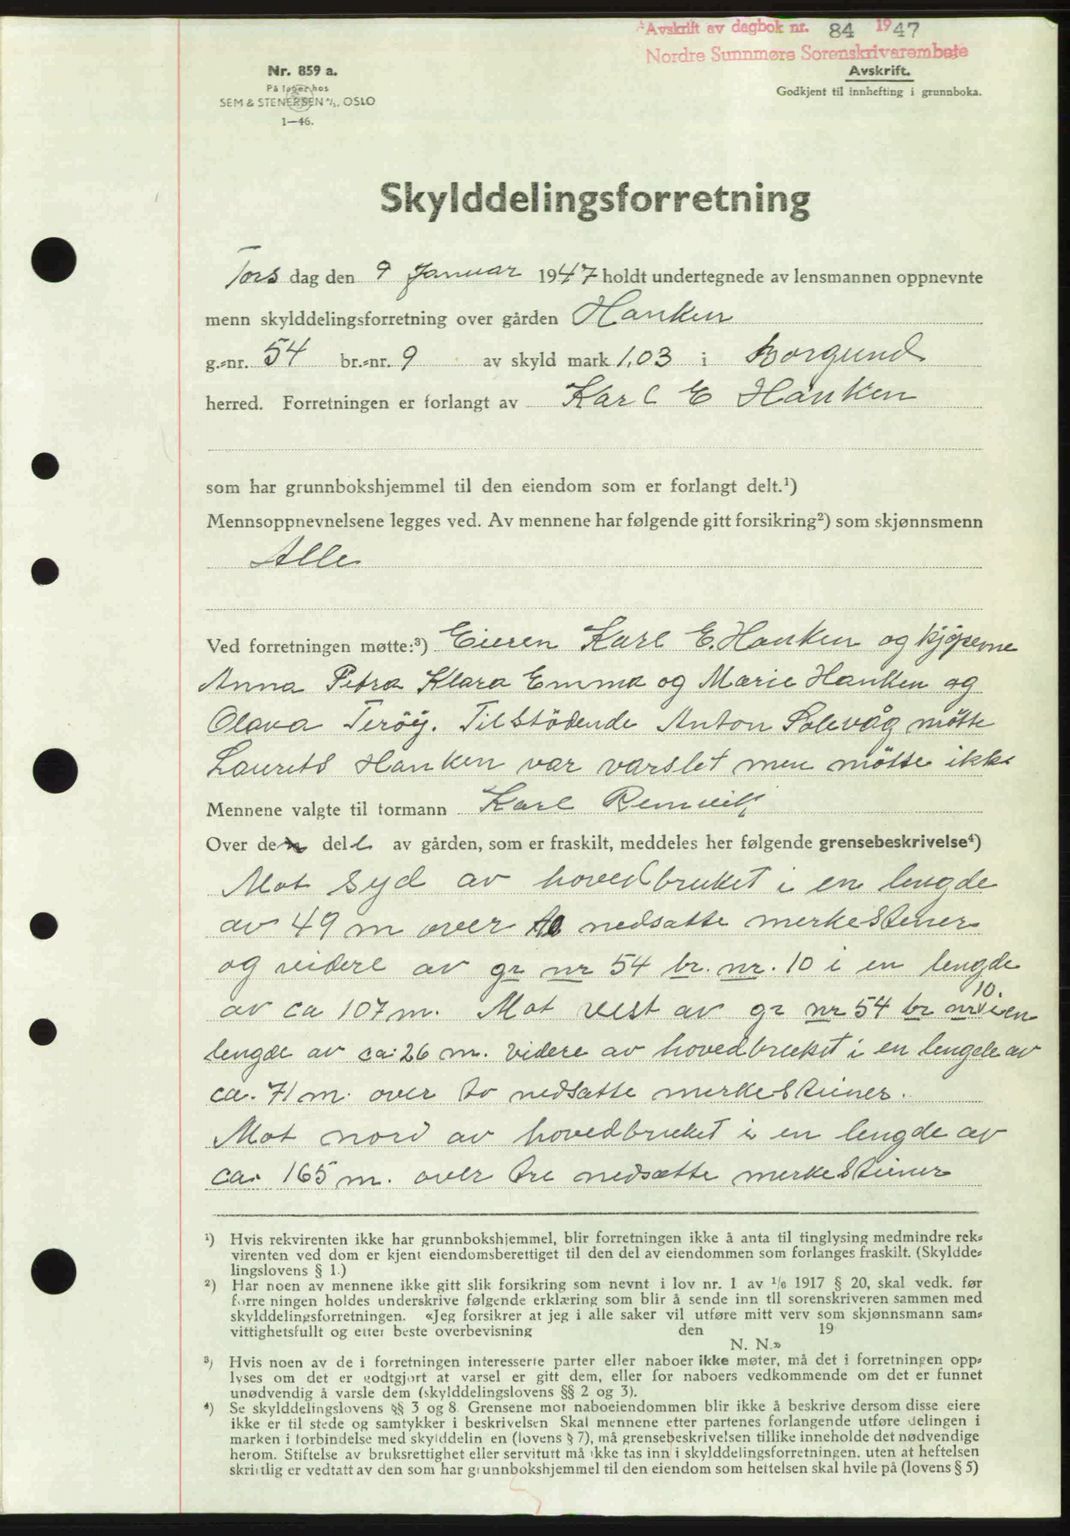 Avskrift av dagbok nr. 84 1947
Nordre Sunnmøre Sorenskrivarembete
Nr. 859 a.
På lager hos
SEM & STENERSEN A/S, OSLO
1—46.
Avskrift.
Godkjent til innhefting i grunnboka.
Skylddelingsforretning
Tors dag den 9 Januar 1947 holdt undertegnede av lensmannen oppnevnte
menn skylddelingsforretning over gården Hanken
g.-nr. 54 br.-nr. 9 av skyld mark 1,03 i Borgund
herred. Forretningen er forlangt av Karl E Hanken
som har grunnbokshjemmel til den eiendom som er forlangt delt.¹)
Mennsoppnevnelsene legges ved. Av mennene har følgende gitt forsikring²) som skjønnsmenn
Alle
Ved forretningen møtte:³) Eieren Karl E. Hanken og kjøperne
Anna Petra Klara Emma og Marie Hanken og
Olava Terøy. Tilstödende Anton Solevåg møtte
Laurits Hanken var varslet men møtte ikke
Mennene valgte til formann Karl Remvik
Over den del av gården, som er fraskilt, meddeles her følgende grensebeskrivelse⁴)
Mot Syd av hovedbruket i en lengde
av 49 m over to nedsatte merkesteiner
og videre av gr nr 54 br. nr. 10 i en lengde
av ca 107 m. Mot vest av gr nr 54 br nr 10. i en
lengde av ca. 26 m. videre av hovedbruket i en lengde av
ca. 71 m. over to nedsatte merkesteiner.
Mot nord av hovedbruket i en lengde av
ca. 165 m. over tre nedsatte merkesteiner
¹) Hvis rekvirenten ikke har grunnbokshjemmel, blir forretningen ikke å anta til tinglysing medmindre rek-
virenten ved dom er kjent eiendomsberettiget til den del av eiendommen som forlanges fraskilt. (Skyldde-
lingslovens § 1.)
²) Har noen av mennene ikke gitt slik forsikring som nevnt i lov nr. 1 av 1/6 1917 § 20, skal vedk. før
forretningen holdes underskrive følgende erklæring som blir å sende inn til sorenskriveren sammen med
skylddelingsforretningen. «Jeg forsikrer at jeg i alle saker vil utføre mitt verv som skjønnsmann sam-
vittighetsfullt og etter beste overbevisning den 19
N. N.»
³) Hvis noen av de i forretningen interesserte parter eller naboer ikke møter, må det i forretningen opp-
lyses om det er godtgjort at varsel er gitt dem, eller for naboers vedkommende om det er funnet
unødvendig å varsle dem (skylddelingslovens §§ 2 og 3).
⁴) Se skylddelingslovens §§ 3 og 8. Grensene mot naboeiendommen blir ikke å beskrive dersom disse eiere
ikke er til stede og samtykker i beskrivelsen Skal mennene etter partenes forlangende utføre delingen i
marken i forbindelse med skylddelingen (lovens § 7), må grensebeskrivelsen tillike inneholde det nødvendige
herom. Stiftelse av bruksrettighet eller servitutt må ikke tas inn i skylddelingsforretningen, uten at heftelsen
skriftlig er vedtatt av den som har grunnbokshjemmel til den eiendom som heftelsen skal hvile på (lovens § 5)